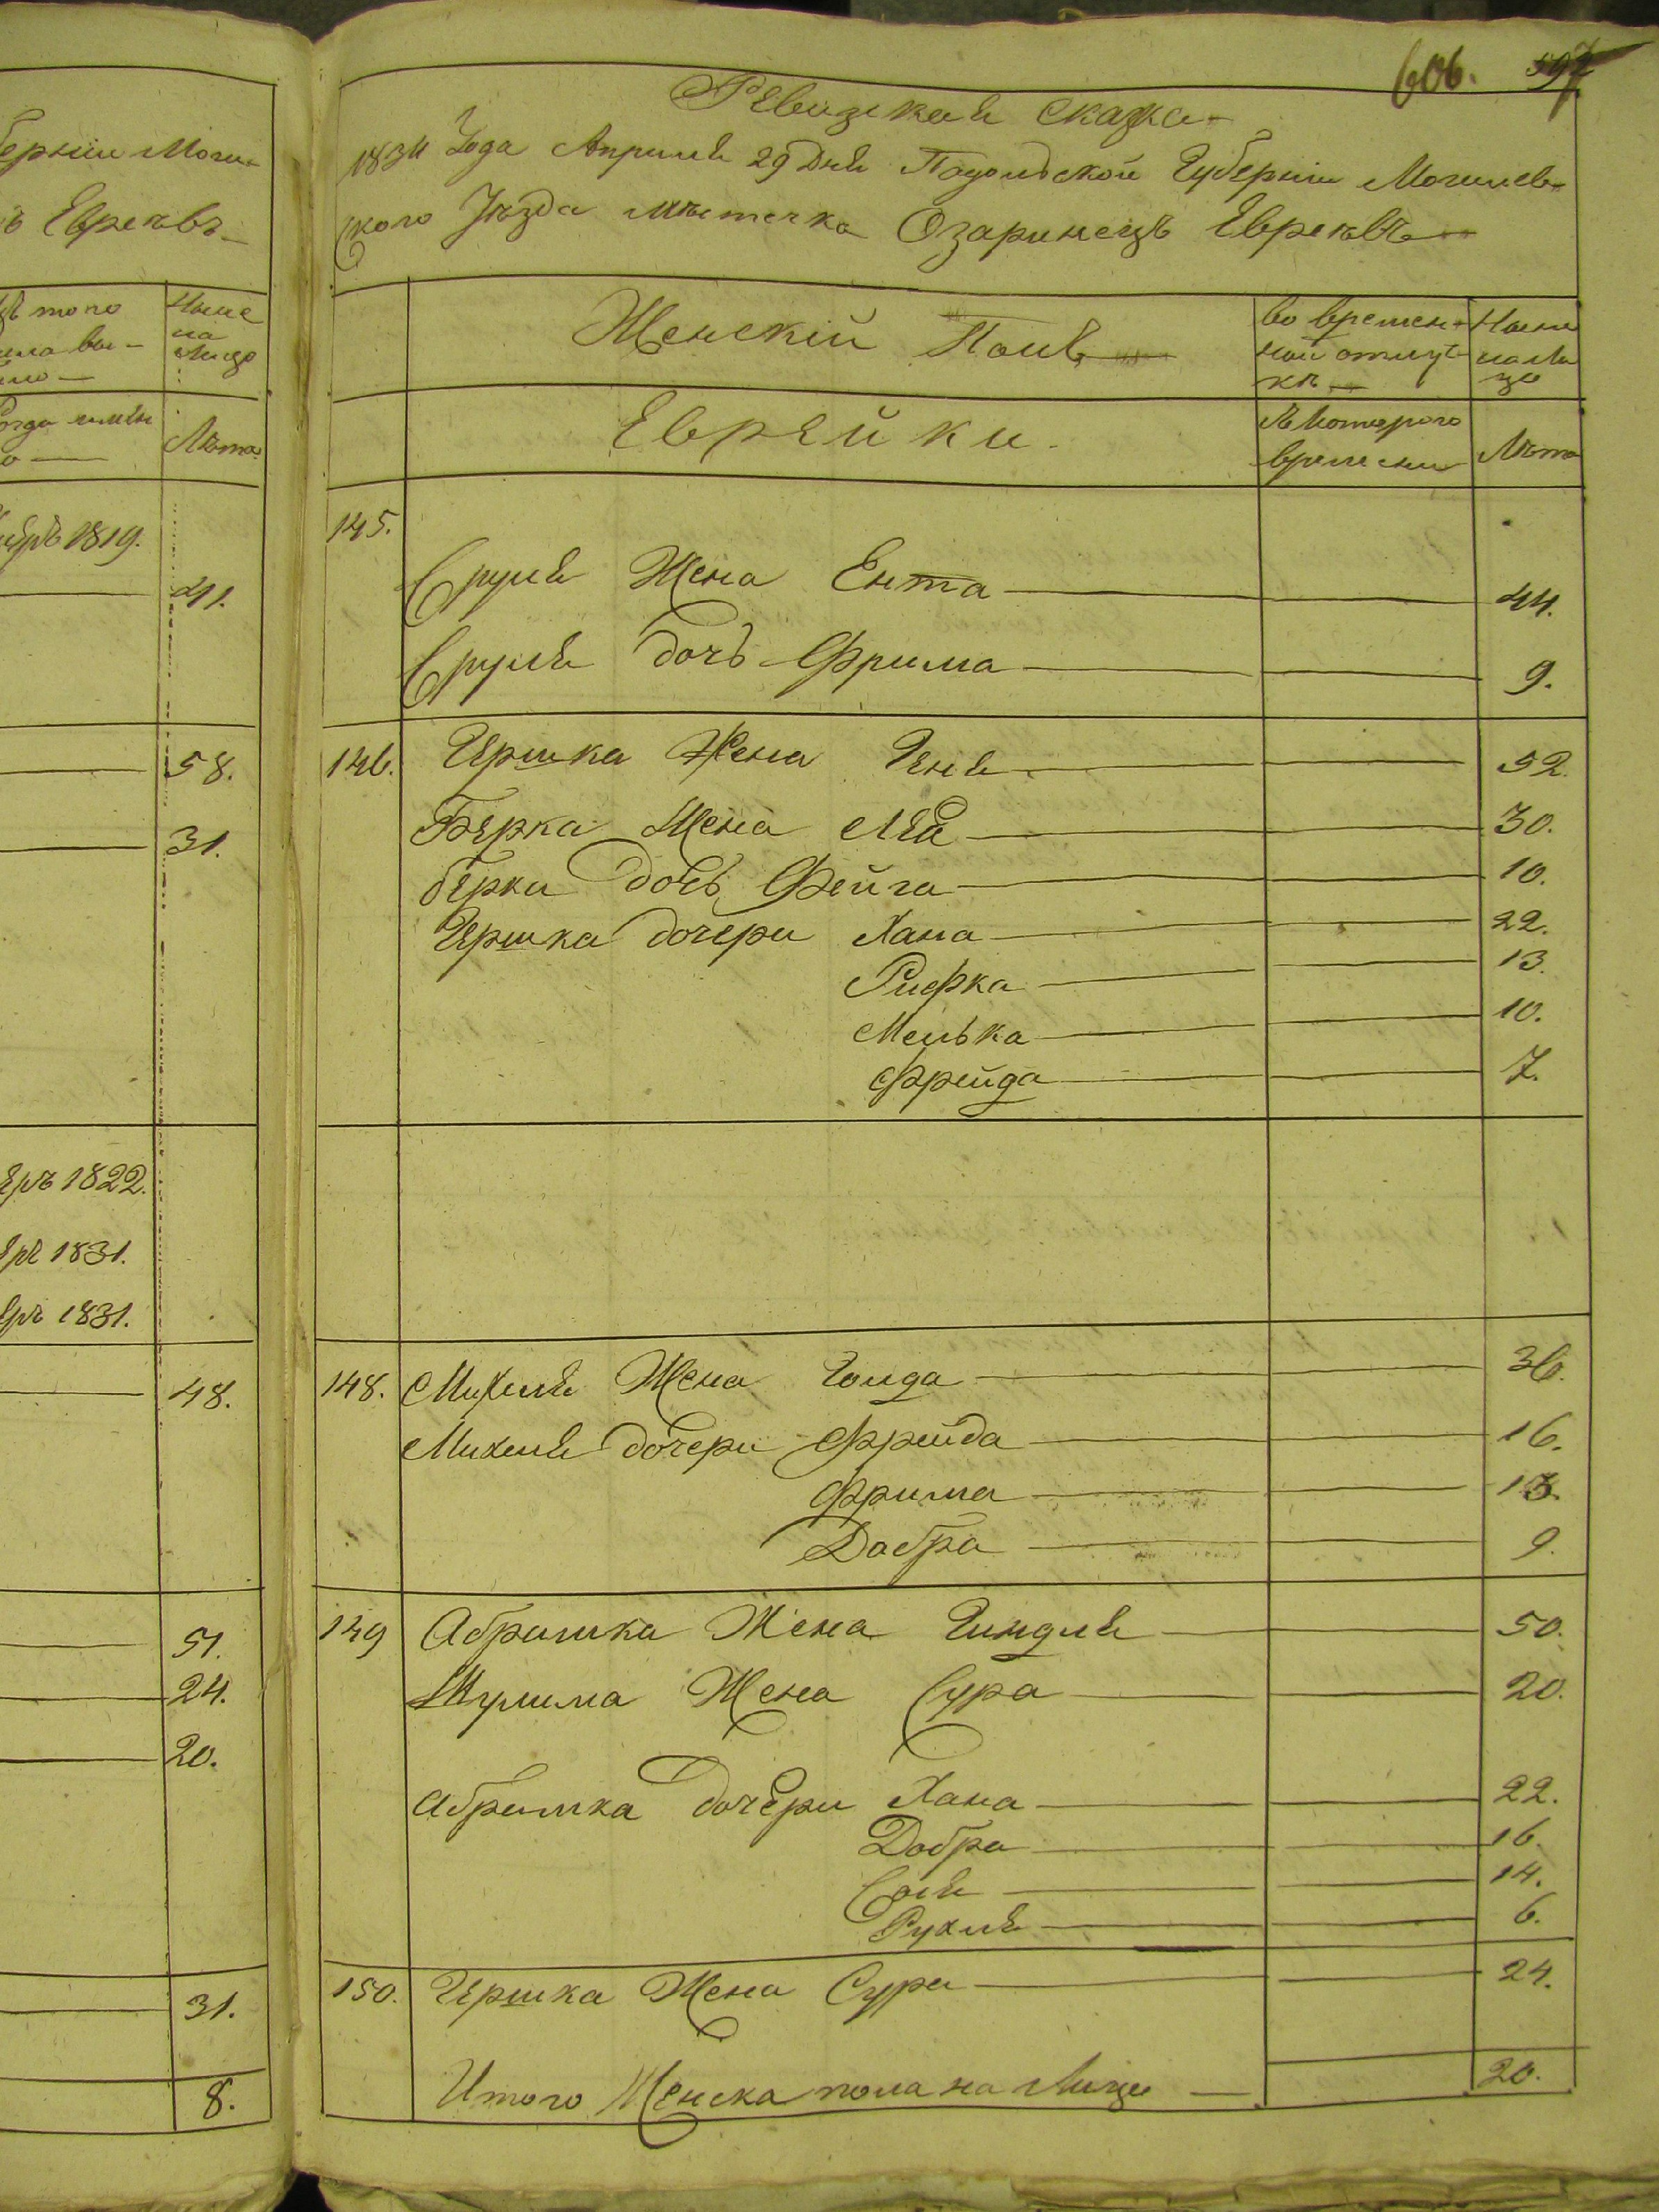 606. 597
Ревизкая Скажа
1834 Года Апреля 29 Дня Подольской Губернии Могилев-
ского Уѣзда мѣстечка Озаринецъ Евреевъ
Женскій Полъ
Во времен-
ной отлуч-
кѣ
Ныне
на ли
цо
Еврейки.
Съ которого
времени
Лѣта
145.
Сруля Жена Ента 44.
Сруля дочь Фрима 9.
146. Гершка Жена Геня 52.
Берка Жена Лея 30.
берки дочь Фейга 10.
Гершка дочери Хана 22.
Рифка 13.
Менька 10.
Фрейда 7.
148. Михеля Жена Голда 36.
Михеля дочери Фрейда 16.
Фрима 13.
Добра 9.
149 Абрамка Жена Гиндля 50.
Шулима Жена Сура 20.
Абрамка дочери Хана 22.
Добра 16.
Сося 14.
Рухля 6.
150. Гершка Жена Сура 24.
Итого Женска пола на Лицо 20.
берніи Моги-
ъ Евреевъ
того
Ныне
на
лицо
Лѣта
1819.
41.
58.
31.
1822.
1831.
1831.
48.
51.
24.
20.
31.
8.